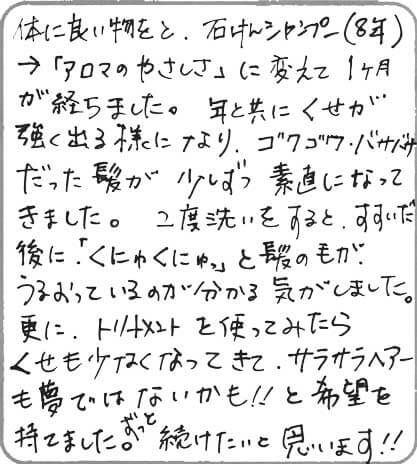 体に良い物をと、石けんシャンプー(8年)
→「アロマのやさしさ」に変えて1ヶ月
が経ちました。年と共にくせが
強く出る様になり、ゴワゴワ・バサバサ
だった髪が少しずつ素直になって
きました。二度洗いをすると、すすいだ
後に「くにゅくにゅっ」と髪の毛が
うるおっているのが分かる気がしました。
更に、トリートメントを使ってみたら
くせも少なくなってきて、サラサラヘアー
も夢ではないかも!!と希望を
持てました。ずっと続けたいと思います!!